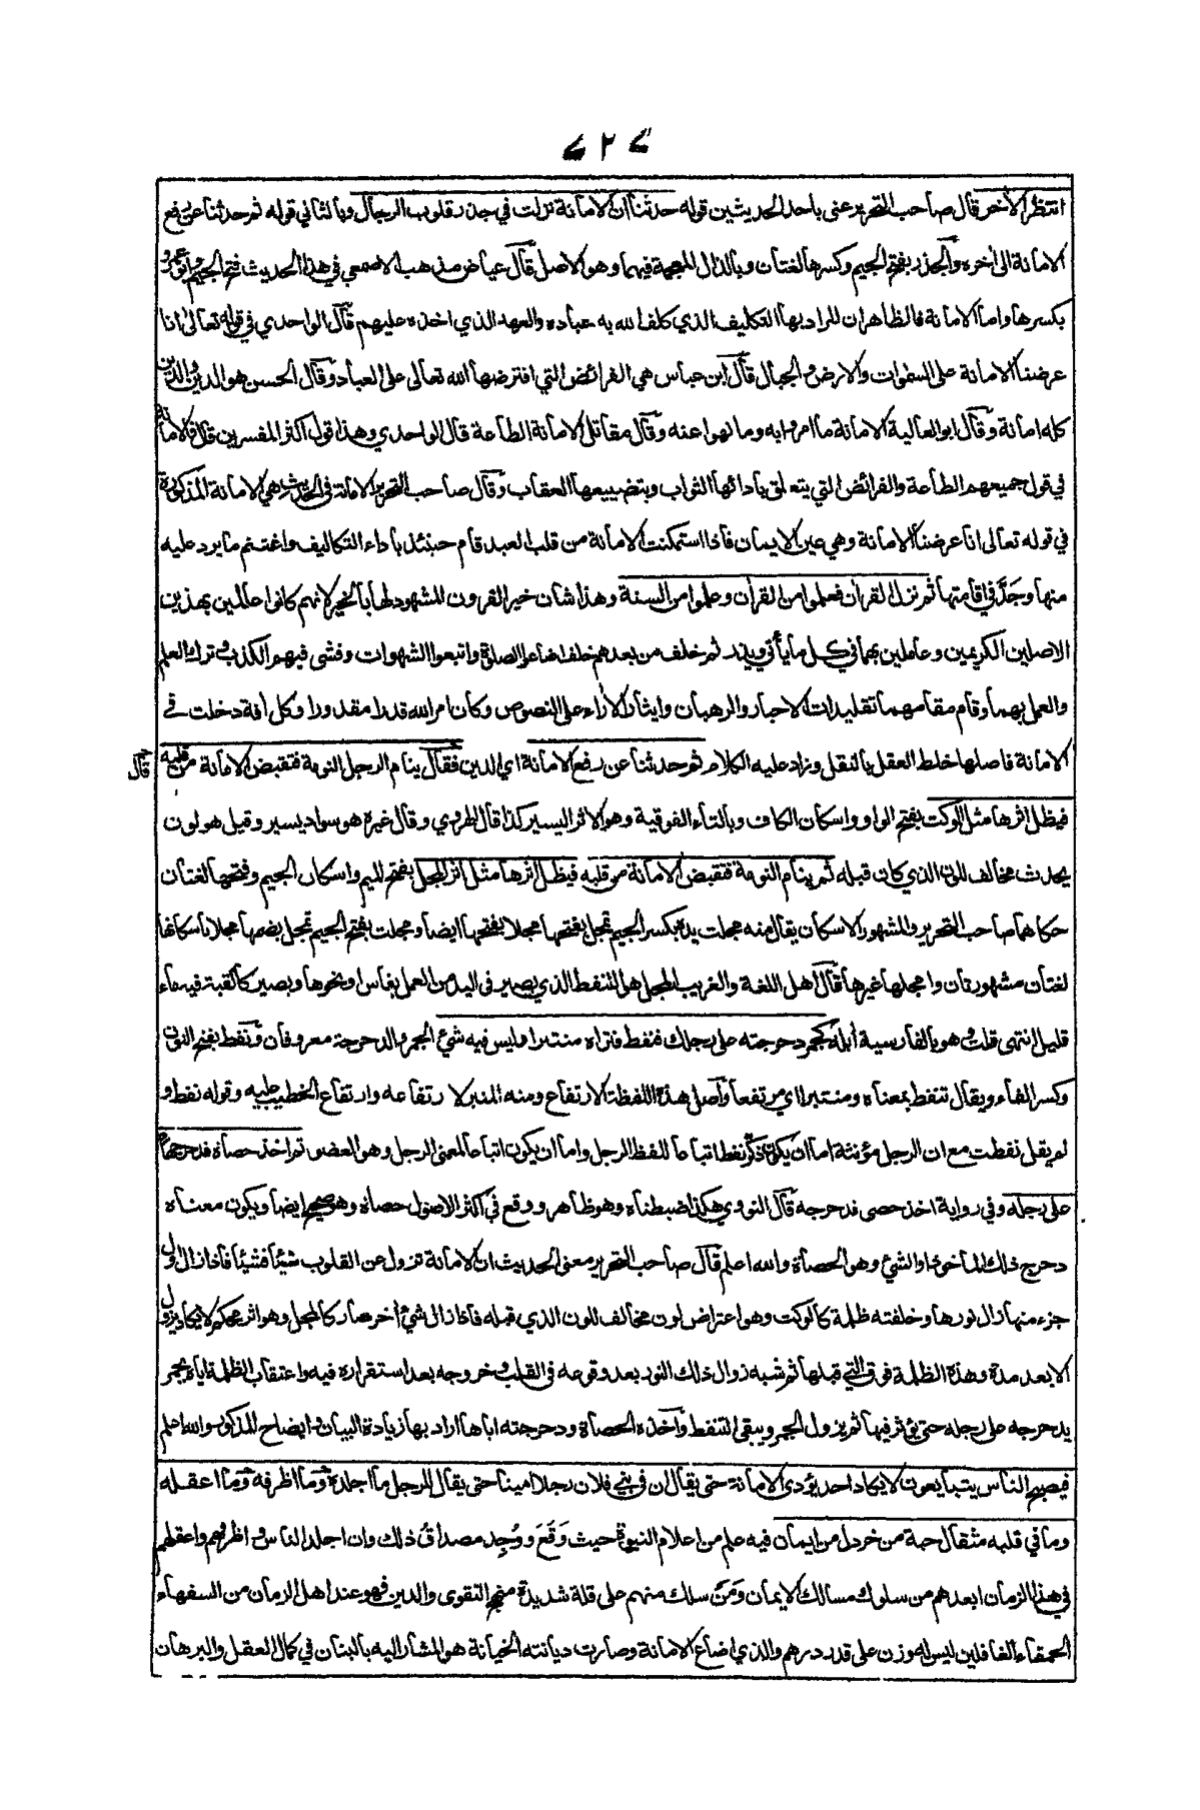 انتظر الآخر قال صاحب التحرير عنى بأحد الحديثين قوله حدثنا ان الامانة نزلت في جذر قلوب الرجال وبالثاني قوله ثم حدثنا عن رفع
الامانة الى آخره والجذر بفتح الجيم وكسرها لغتان وبالذال المعجمة فيهما وهو الاصل قال عياض مذهب الاصمعي في هذا الحديث فتح الجيم وابو عمرو
بكسرها واما الامانة فالظاهر ان المراد بها التكليف الذي كلف الله به عباده والعهد الذي اخذه عليهم قال الواحدي في قوله تعالى انا
عرضنا الامانة على السموات والارض والجبال قال ابن عباس هي الفرائض التي افترضها الله تعالى على العباد وقال الحسن هو الدين والدين
كله امانة وقال ابو العالية الامانة ما امروا به وما نهوا عنه وقال مقاتل الامانة الطاعة قال الواحدي وهذا قول اكثر المفسرين قال فالامانة
في قول جميعهم الطاعة والفرائض التي يتعلق بادائها الثواب وبتضييعها العقاب وقال صاحب التحرير الامانة في الحديث هي الامانة المذكورة
في قوله تعالى انا عرضنا الامانة وهي عين الايمان فاذا استمكنت الامانة من قلب العبد قام حينئذ باداء التكاليف واغتنم ما يرد عليه
منها وجَدَّ في اقامتها ثم نزل القرآن فعلموا من القرآن وعلموا من السنة وهذا شان خير القرون المشهود لها بالخير لانهم كانوا عالمين بهذين
الاصلين الكريمين وعاملين بهما في كل ما يأتي ويذر ثم خلف من بعدهم خلف اضاعوا الصلوة واتبعوا الشهوات وفشى فيهم الكذب وترك العلم
والعمل بهما وقام مقامهما تقليدات الاحبار والرهبان وايثار الآراء على النصوص وكان امر الله قدرا مقدورا وكل آفة دخلت في
الامانة فاصلها خلط العقل بالنقل وزاد عليه الكلام ثم حدثنا عن رفع الامانة اي الدين فقال ينام الرجل النومة فتقبض الامانة من قلبه
قال
فيظل اثرها مثل الوكت بفتح الواو واسكان الكاف وبالتاء الفوقية وهو الاثر اليسير كذا قال الهروي وقال غيره هو سواد يسير وقيل هو لون
يحدث مخالف للون الذي كان قبله ثم ينام النومة فتقبض الامانة من قلبه فيظل اثرها مثل اثر المجل بفتح الميم واسكان الجيم وفتحها لغتان
حكاهما صاحب التحرير والمشهور الاسكان يقال منه مجلت يده بكسر الجيم تمجل بفتحها مجلا بفتحها ايضا ومجلت بفتح الجيم تمجل بضمها مجلا باسكانها
لغتان مشهورتان وامجلها غيرها قال اهل اللغة والغريب المجل هو التنفط الذي يصير في اليد من العمل بفأس او نحوها ويصير كالقبة فيه ماء
قليل انتهى قلت وهو بالفارسية آبله كجمر دحرجته على رجلك فنفط فتراه منتبرا وليس فيه شئ الجمر والدحرجة معروفان ونفط بفتح النون
وكسر الفاء ويقال تنفط بمعناه ومنتبرا اي مرتفعا واصل هذه اللفظة الارتفاع ومنه المنبر لارتفاعه وارتفاع الخطيب عليه وقوله نفط و
لم يقل نفطت مع ان الرجل مؤنثة اما ان يكون ذكر نفط اتباعا للفظ الرجل واما ان يكون اتباعا لمعنى الرجل وهو العضو ثم اخذ حصاة فدحرجها
على رجله وفي رواية اخذ حصى فدحرجه قال النووي هكذا ضبطناه وهو ظاهر ووقع في اكثر الاصول حصاة وهو صحيح ايضا ويكون معناه
دحرج ذلك المأخوذ او الشئ وهو الحصاة والله اعلم قال صاحب التحرير معنى الحديث ان الامانة تزول عن القلوب شيئا فشيئا فاذا زال اول
جزء منها زال نورها وخلفته ظلمة كالوكت وهو اعتراض لون مخالف للون الذي قبله فاذا زال شئ آخر صار كالمجل وهو اثر محكم لا يكاد يزول
الا بعد مدة وهذه الظلمة فوق التي قبلها ثم شبه زوال ذلك النور بعد وقوعه في القلب وخروجه بعد استقراره فيه واعتقاب الظلمة اياه بجمر
يدحرجه على رجله حتى يؤثر فيها ثم يزول الجمر ويبقى التنفط واخذه الحصاة ودحرجته اياها اراد بها زيادة البيان وايضاح المذكور والله اعلم
فيصبح الناس يتبايعون لا يكاد احد يؤدي الامانة حتى يقال ان في بني فلان رجلا امينا حتى يقال للرجل ما اجلده وما اظرفه وما اعقله
وما في قلبه مثقال حبة من خردل من ايمان فيه علم من اعلام النبوة حيث وَقَعَ ووُجِد مصداقُ ذلك وان اجلد الناس واظرفهم واعقلهم
في هذا الزمان ابعدهم من سلوك مسالك الايمان ومَنْ سلك منهم على قلة شديدة منهج التقوى والدين فهو عند اهل الزمان من السفهاء
الحمقاء الغافلين ليس له وزن على قدر درهم والذي اضاع الامانة وصارت ديانته الخيانة هو المشار اليه بالبنان في كمال العقل والبرهان